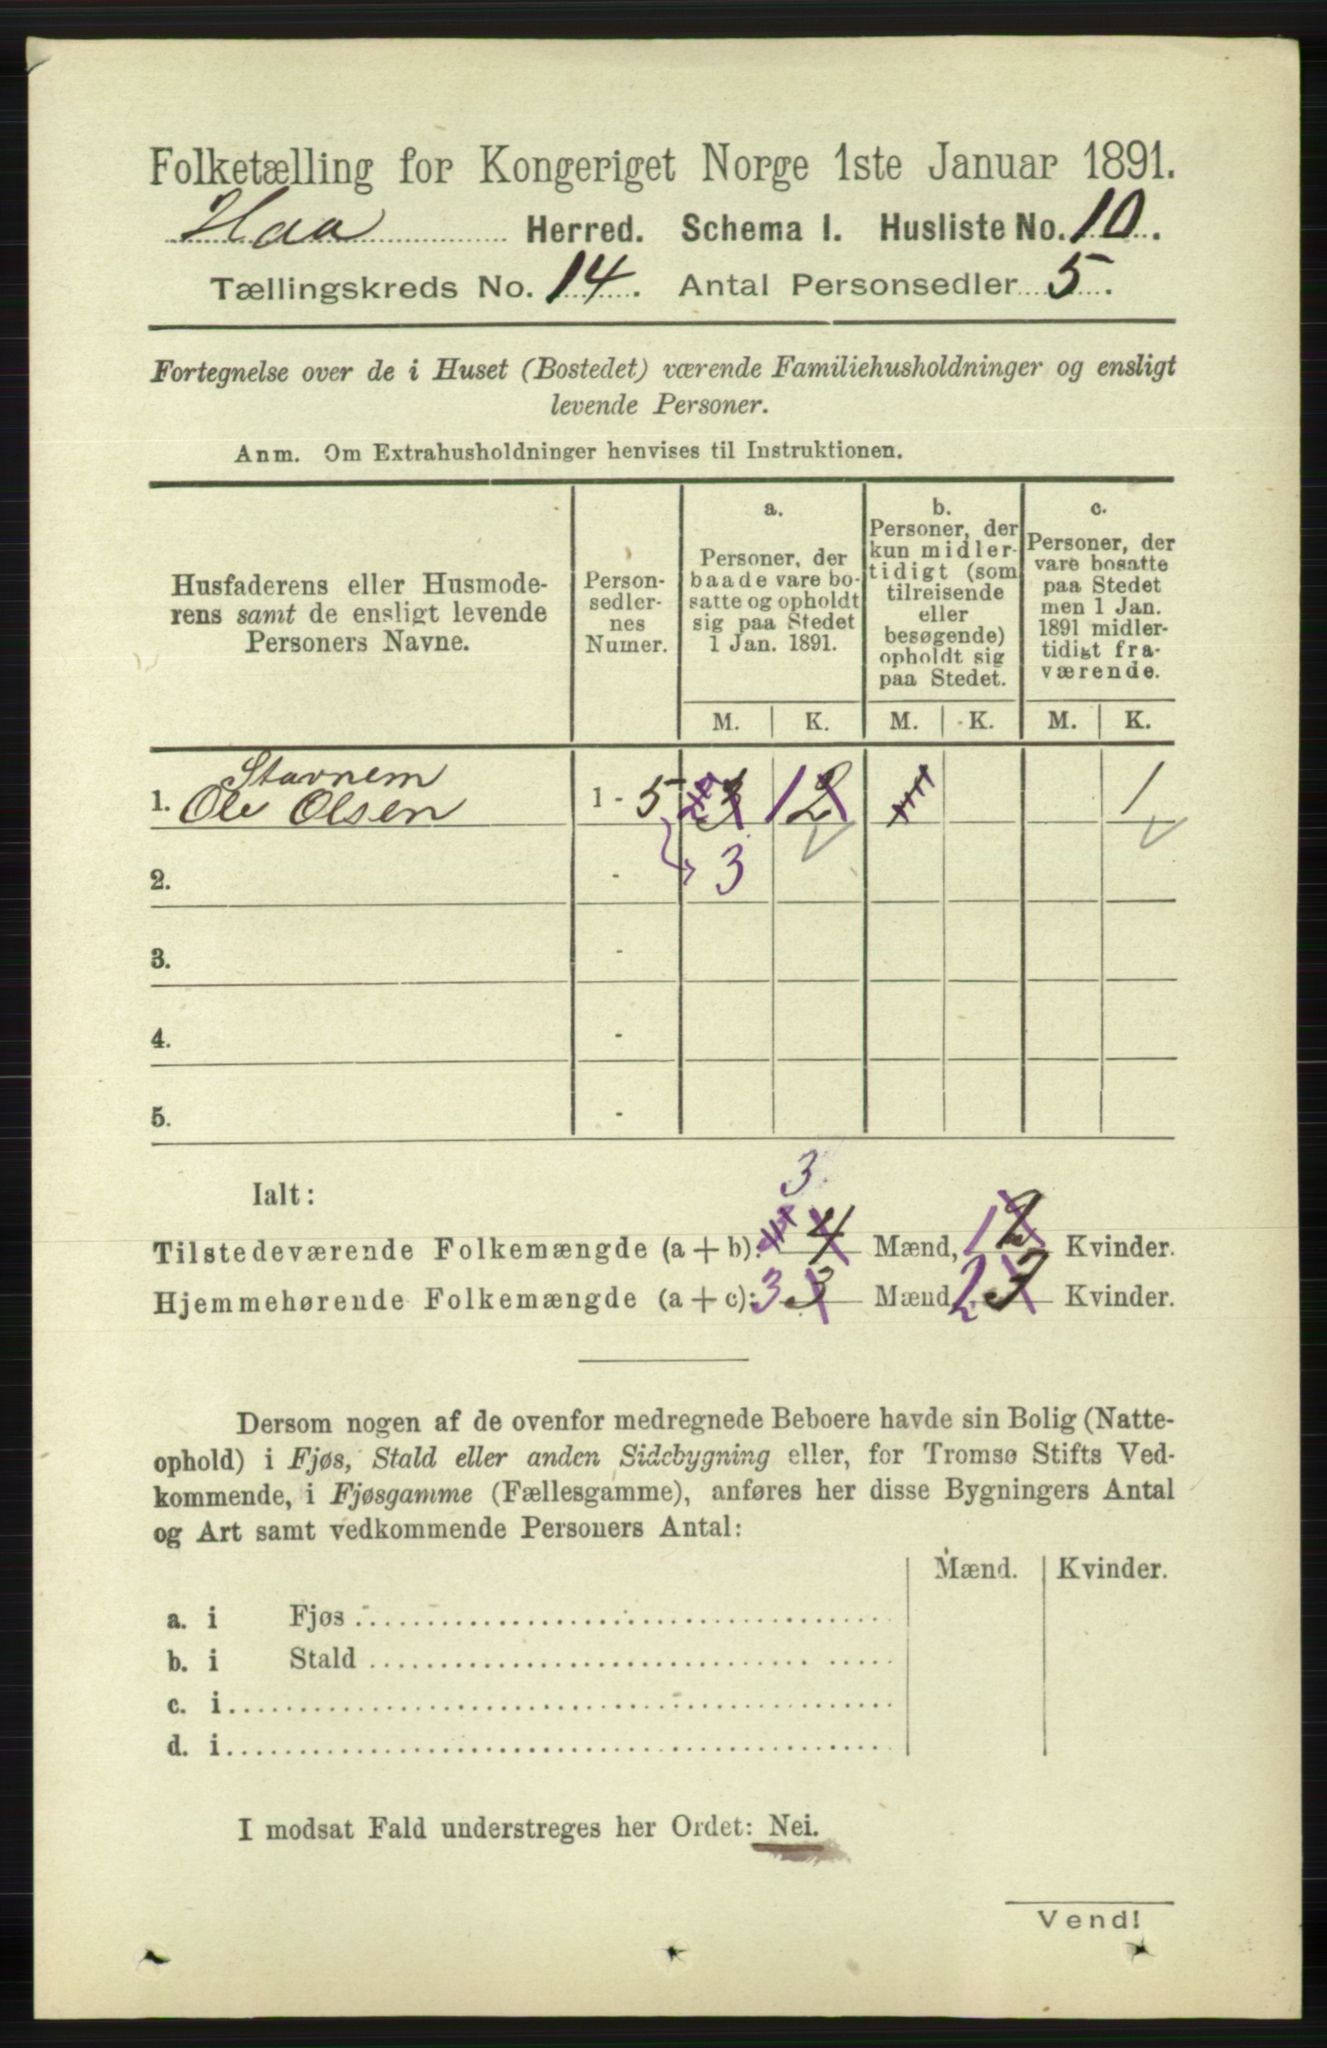 Folketælling for Kongeriget Norge 1ste Januar 1891.
Haa Herred. Schema I. Husliste No. 10.
Tællingskreds No. 14. Antal Personsedler 5.
Fortegnelse over de i Huset (Bostedet) værende Familiehusholdninger og ensligt
levende Personer.
Anm. Om Extrahusholdninger henvises til Instruktionen.
Husfaderens eller Husmode-
rens samt de ensligt levende
Personers Navne.
Person-
sedler-
nes
Numer.
a.
Personer, der
baade vare bo-
satte og opholdt
sig paa Stedet
1 Jan. 1891.
b.
Personer, der
kun midler-
tidigt (som
tilreisende
eller
besøgende)
opholdt sig
paa Stedet.
c.
Personer, der
vare bosatte
paa Stedet
men 1 Jan.
1891 midler-
tidigt fra-
værende.
M. K. M. K. M. K.
Stavnem
1. Ole Olsen 1 - 5 3 1 2 1
2. - 3
3. -
4. -
5. -
Ialt:
3
Tilstedeværende Folkemængde (a + b): 4 Mænd, 1 2 Kvinder.
Hjemmehørende Folkemængde (a + c): 3 3 Mænd 2 3 Kvinder.
Dersom nogen af de ovenfor medregnede Beboere havde sin Bolig (Natte-
ophold) i Fjøs, Stald eller anden Sidebygning eller, for Tromsø Stifts Ved-
kommende, i Fjøsgamme (Fællesgamme), anføres her disse Bygningers Antal
og Art samt vedkommende Personers Antal:
Mænd. Kvinder.
a. i Fjøs
b. i Stald
c. i
d. i
I modsat Fald understreges her Ordet: Nei.
Vend!